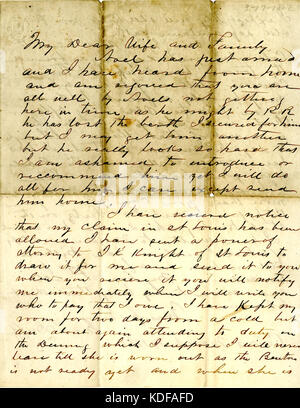 My Dear Wife and Family
Noel has just arrived
and I have heard from home
and am rejoiced that you are
all well by Noels not getting
here in time, as he might by R R
he has lost the berth I secured for him
but I may get him another
but he really looks so hard that
I am ashamed to introduce or
reccommend him yet I will do
all for him I can except send
him home.
I have received notice
that my claim in St Louis has been
allowed I have sent a power of
attorny to J R Knight of St Louis to
draw it for me and send it to you
when you receive it you will notify
me immediately when I will write you
who to pay that I owe. I have kept my
room for two days from a cold but
am about again attending to duty on
the which I suppose I will never
leave till she is worn out as the Benton
is not ready yet and when she is
alamy
Image ID: KDFAFD
www.alamy.com